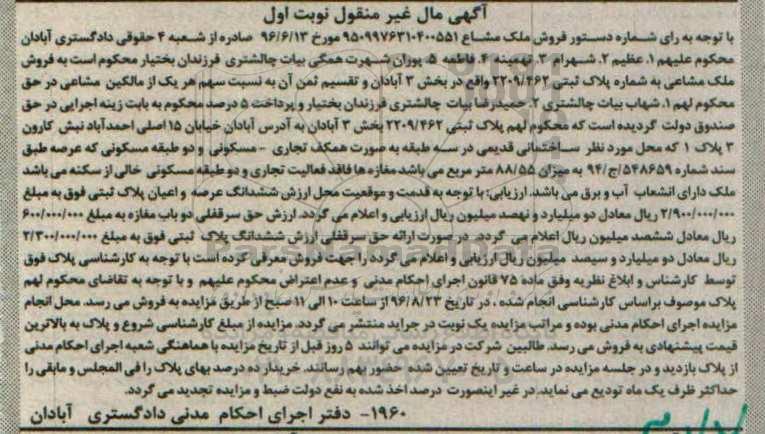 آگهی مال غیر منقول نوبت اول
با توجه به رای شماره دستور فروش ملک مشاع ۹۵۰۹۹۷۶۳۱۰۴۰۰۵۵۱ مورخ ۹۶/۶/۱۳ صادره از شعبه ۴ حقوقی دادگستری آبادان
محکوم علیهم ۱. عظیم ۲. شهرام ۳. تهمینه ۴. فاطمه ۵. پوران شهرت همگی بیات چالشتری فرزندان بختیار محکوم است به فروش
ملک مشاعی به شماره پلاک ثبتی ۲۲۰۹/۴۶۲ واقع در بخش ۳ آبادان و تقسیم ثمن آن به نسبت سهم هر یک از مالکین مشاعی در حق
محکوم لهم ۱. شهاب بیات چالشتری ۲. حمیدرضا بیات چالشتری فرزندان بختیار و پرداخت ۵ درصد محکوم به بابت زینه اجرایی در حق
صندوق دولت گردیده است که محکوم لهم پلاک ثبتی ۲۲۰۹/۴۶۲ بخش ۳ آبادان به آدرس آبادان خیابان ۱۵ اصلی احمدآباد نبش کارون
۳ پلاک ۱ که محل مورد نظر ساختمانی قدیمی در سه طبقه به صورت همکف تجاری - مسکونی و دو طبقه مسکونی که عرصه طبق
سند شماره ۵۴۸۶۵۹/ج/۹۴ به میزان ۸۸/۵۵ متر مربع می باشد مغازه ها فاقد فعالیت تجاری و دو طبقه مسکونی خالی از سکنه می باشد
ملک دارای انشعاب آب و برق می باشد. ارزیابی: با توجه به قدمت و موقعیت محل ارزش ششدانگ عرصه و اعیان پلاک ثبتی فوق به مبلغ
۲/۹۰۰/۰۰۰/۰۰۰ ریال معادل دو میلیارد و نهصد میلیون ریال ارزیابی و اعلام می گردد. ارزش حق سرقفلی دو باب مغازه به مبلغ ۶۰۰/۰۰۰/۰۰۰
ریال معادل ششصد میلیون ریال اعلام می گردد. در صورت ارائه حق سرقفلی ارزش ششدانگ پلاک ثبتی فوق به مبلغ ۲/۳۰۰/۰۰۰/۰۰۰
ریال معادل دو میلیارد و سیصد میلیون ریال ارزیابی و اعلام می گردد را جهت فروش معرفی کرده است با توجه به کارشناسی پلاک فوق
توسط کارشناس و ابلاغ نظریه وفق ماده ۷۵ قانون اجرای احکام مدنی و عدم اعتراض محکوم علیهم و با توجه به تقاضای محکوم لهم
پلاک موصوف براساس کارشناسی انجام شده ، در تاریخ ۹۶/۸/۲۳ از ساعت ۱۰ الی ۱۱ صبح از طریق مزایده به فروش می رسد. محل انجام
مزایده اجرای احکام مدنی بوده و مراتب مزایده یک نوبت در جراید منتشر می گردد. مزایده از مبلغ کارشناسی شروع و پلاک به بالاترین
قیمت پیشنهادی به فروش می رسد. طالبین شرکت در مزایده می توانند ۵ روز قبل از تاریخ مزایده با هماهنگی شعبه اجرای احکام مدنی
از پلاک بازدید و در جلسه مزایده در ساعت و تاریخ تعیین شده حضور بهم رسانند. خریدار ده درصد بهای پلاک را فی المجلس و مابقی را
حداکثر ظرف یک ماه تودیع می نماید. در غیر اینصورت درصد اخذ شده به نفع دولت ضبط و مزایده تجدید می گردد.
۱۹۶۰- دفتر اجرای احکام مدنی دادگستری آبادان